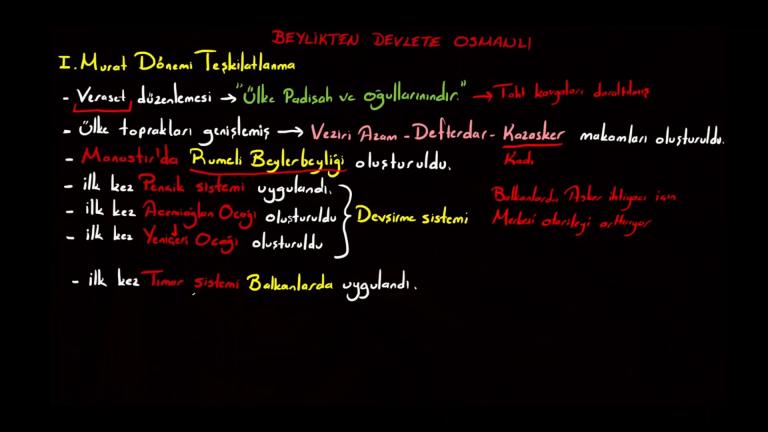 BEYLİKTEN DEVLETE OSMANLI
I. Murat Dönemi Teşkilatlanma
- Veraset düzenlemesi → "Ülke Padişah ve oğullarınındır." → Taht kavgaları daraltılmış
- Ülke toprakları genişlemiş → Veziri Azam - Defterdar - Kazasker makamları oluşturuldu.
Kadı
- Manastır'da Rumeli Beylerbeyliği oluşturuldu.
- ilk kez Pencik sistemi uygulandı.
- ilk kez Acemioğlan Ocağı oluşturuldu
- ilk kez Yeniçeri Ocağı oluşturuldu
Devşirme sistemi
Balkanlarda Asker ihtiyacı için
Merkezi otoriteyi arttırıyor
- ilk kez Tımar sistemi Balkanlarda uygulandı.